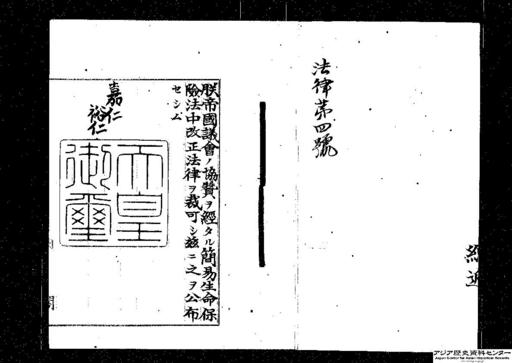 法律第四號
朕帝國議會ノ協賛ヲ經タル簡易生命保
險法中改正法律ヲ裁可シ玆ニ之ヲ公布
セシム
嘉仁
裕仁
天皇
御璽
アジア歴史資料センター
Japan Center for Asian Historical Records